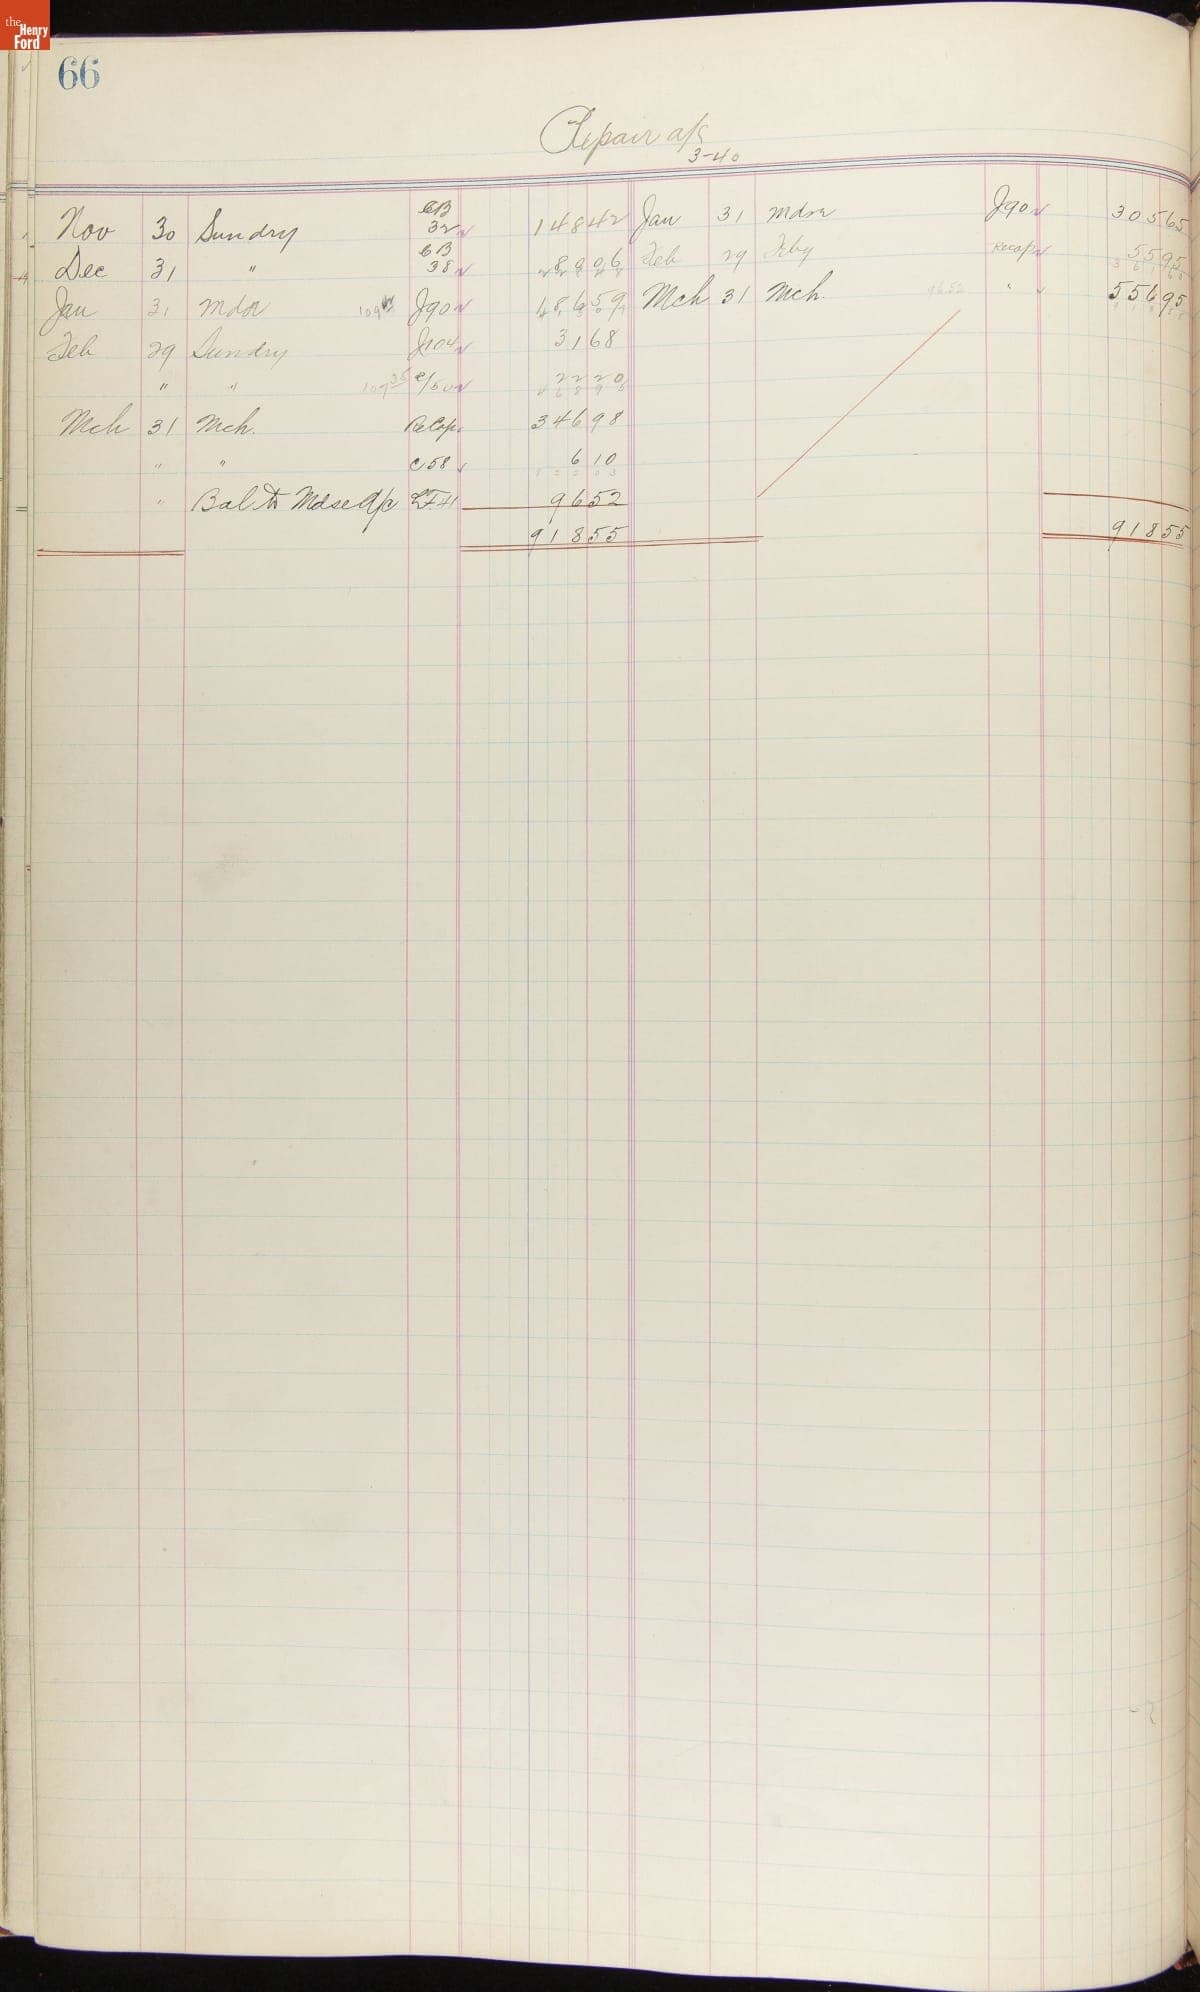 the
Henry
Ford
66
Repair a/c
3-40
Nov 30 Sundry CB 32 148 42 Jan 31 Mdse J90 305 65
Dec 31 " CB 38 89 06 Feb 29 Feby Recap 55 95
Jan 31 Mdse J90 186 59 Mch 31 Mch. " 556 95
Feb 29 Sundry J104 31 68 9652
" " C/50 22 20
Mch 31 Mch. ReCap. 346 98
" " C58 6 10
" Bal to Mdse A/c LF41 96 52
918 55 918 55